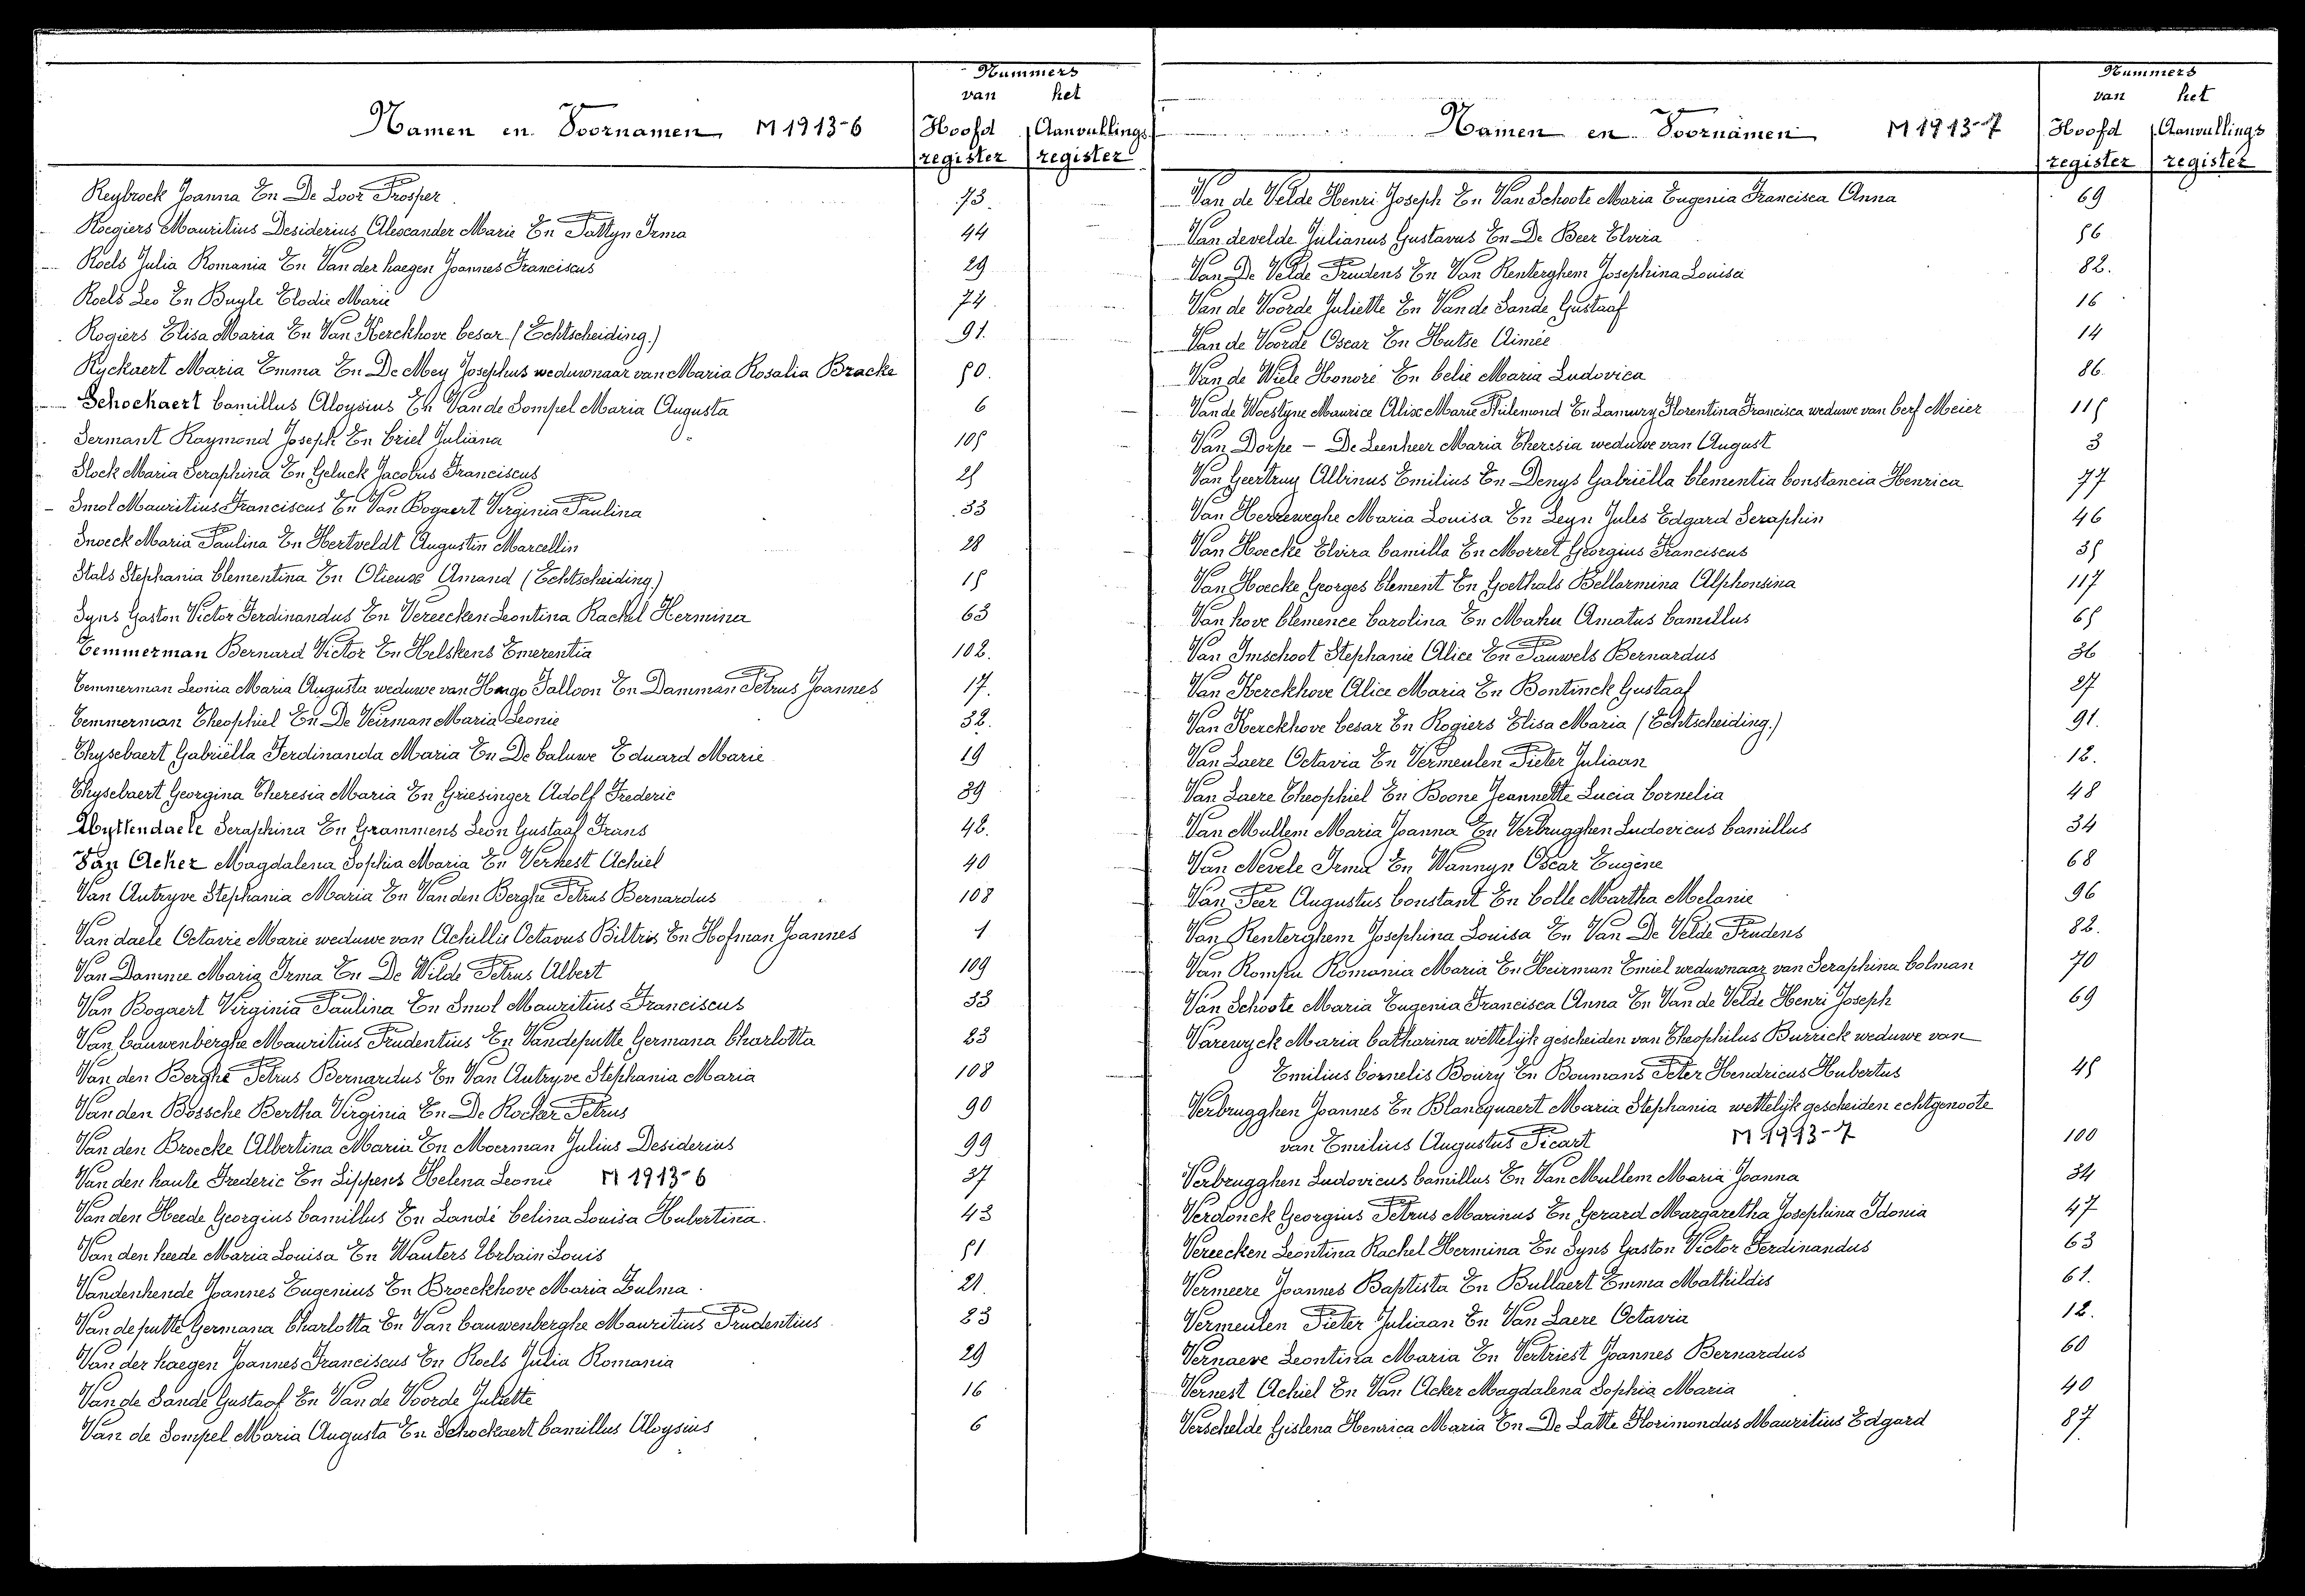 Nummers
van het
Namen en Voornamen M 1913-6 Hoofd Aanvullings
register register
Reybrock Joanna En De Loor Prosper 73.
Roegiers Mauritius Desiderius Alexander Marie En Pattyn Irma 44
Roels Julia Romania En Van der haegen Joannes Franciscus 29
Roels Leo En Buyle Elodie Marie 74
Rogiers Elisa Maria En Van Kerckhove Cesar (Echtscheiding.) 91.
Ryckaert Maria Emma En De Mey Josephus weduwnaar van Maria Rosalia Bracke 50.
Schockaert Camillus Aloysius En Van de Sompel Maria Augusta 6
Sermant Raymond Joseph En Criel Juliana 105
Slock Maria Seraphina En Geluck Jacobus Franciscus 25
Smol Mauritius Franciscus En Van Bogaert Virginia Paulina 33
Snoeck Maria Paulina En Hertveldt Augustin Marcellin 28
Stals Stephania Clementina En Olieux Amand (Echtscheiding) 15
Syns Gaston Victor Ferdinandus En Vereecken Leontina Rachel Hermina 63
Temmerman Bernard Victor En Helskens Emerentia 102.
Temmerman Leonia Maria Augusta weduwe van Hugo Talloon En Damman Petrus Joannes 17.
Temmerman Theophiel En De Veirman Maria Leonie 32.
Thysebaert Gabriëlla Ferdinanda Maria En De Caluwe Eduard Marie 19
Thysebaert Georgina Theresia Maria En Griesinger Adolf Frederic 39
Uyttendaele Seraphina En Grammens Leon Gustaaf Frans 42.
Van Acker Magdalena Sophia Maria En Vernest Achiel 40
Van Autryve Stephania Maria En Van den Berghe Petrus Bernardus 108
Van daele Octavie Marie weduwe van Achillis Octavus Biltris En Hofman Joannes 1
Van Damme Maria Irma En De Wilde Petrus Albert 109
Van Bogaert Virginia Paulina En Smol Mauritius Franciscus 33
Van Cauwenberghe Mauritius Prudentius En Vandeputte Germana Charlotta 23
Van den Berghe Petrus Bernardus En Van Autryve Stephania Maria 108
Van den Bossche Bertha Virginia En De Rocker Petrus 90
Van den Broecke Albertina Maria En Moerman Julius Desiderius 99
Van den haute Frederic En Lippens Helena Leonie M 1913-6 37
Van den Heede Georgius Camillus En Landé Celina Louisa Hubertina. 43
Van den heede Maria Louisa En Wauters Urbain Louis 51
Vandenhende Joannes Eugenius En Broeckhove Maria Zulma 21.
Van de putte Germana Charlotta En Van Cauwenberghe Mauritius Prudentius 23
Van der haegen Joannes Franciscus En Roels Julia Romania 29
Van de Sande Gustaaf En Van de Voorde Juliette 16
Van de Sompel Maria Augusta En Schockaert Camillus Aloysius 6
Nummers
van het
Namen en Voornamen M 1913-7 Hoofd Aanvullings
register register
Van de Velde Henri Joseph En Van Schoote Maria Eugenia Francisca Anna 69
Van develde Julianus Gustavus En De Beer Elvira 56
Van De Velde Prudens En Van Renterghem Josephina Louisa 82.
Van de Voorde Juliette En Van de Sande Gustaaf 16
Van de Voorde Oscar En Hutse Aimée 14
Van de Wiele Honoré En Celie Maria Ludovica 86
Van de Woestyne Maurice Alix Marie Philemond En Lamury Florentina Francisca weduwe van Cerf Meier 115
Van Dorpe - De Leenheer Maria Theresia weduwe van August 3
Van Geertruy Albinus Emilius En Denys Gabriëlla Clementia Constancia Henrica 77
Van Herreweghe Maria Louisa En Leyn Jules Edgard Seraphin 46
Van Hoecke Elvira Camilla En Morret Georgius Franciscus 35
Van Hoecke Georges Clement En Goethals Bellarmina Alphonsina 117
Van hove Clemence Carolina En Mahu Amatus Camillus 65
Van Imschoot Stephanie Alice En Pauwels Bernardus 36
Van Kerckhove Alice Maria En Bontinck Gustaaf 27
Van Kerckhove Cesar En Rogiers Elisa Maria (Echtscheiding.) 91.
Van Laere Octavia En Vermeulen Pieter Juliaan 12.
Van Laere Theophiel En Boone Jeannette Lucia Cornelia 48
Van Mullem Maria Joanna En Verbrugghen Ludovicus Camillus 34
Van Nevele Irma En Wannyn Oscar Eugène 68
Van Peer Augustus Constant En Colle Martha Melanie 96
Van Renterghem Josephina Louisa En Van De Velde Prudens 82.
Van Rompu Romania Maria En Heirman Emiel weduwnaar van Seraphina Colman 70
Van Schoote Maria Eugenia Francisca Anna En Van de Velde Henri Joseph 69
Varewyck Maria Catharina wettelijk gescheiden van Theophilus Burrick weduwe van
Emilius Cornelis Boury En Boumans Peter Hendricus Hubertus 45
Verbrugghen Joannes En Blancquaert Maria Stephania wettelijk gescheiden echtgenoote
van Emilius Augustus Picart M 1913-7 100
Verbrugghen Ludovicus Camillus En Van Mullem Maria Joanna 34
Verdonck Georgius Petrus Marinus En Gerard Margaretha Josephina Idonia 47
Vereecken Leontina Rachel Hermina En Syns Gaston Victor Ferdinandus 63
Vermeere Joannes Baptista En Bullaert Emma Mathildis 61.
Vermeulen Pieter Juliaan En Van Laere Octavia 12.
Vernaeve Leontina Maria En Vertriest Joannes Bernardus 60
Vernest Achiel En Van Acker Magdalena Sophia Maria 40
Verschelde Gislena Henrica Maria En De Latte Florimondus Mauritius Edgard 87